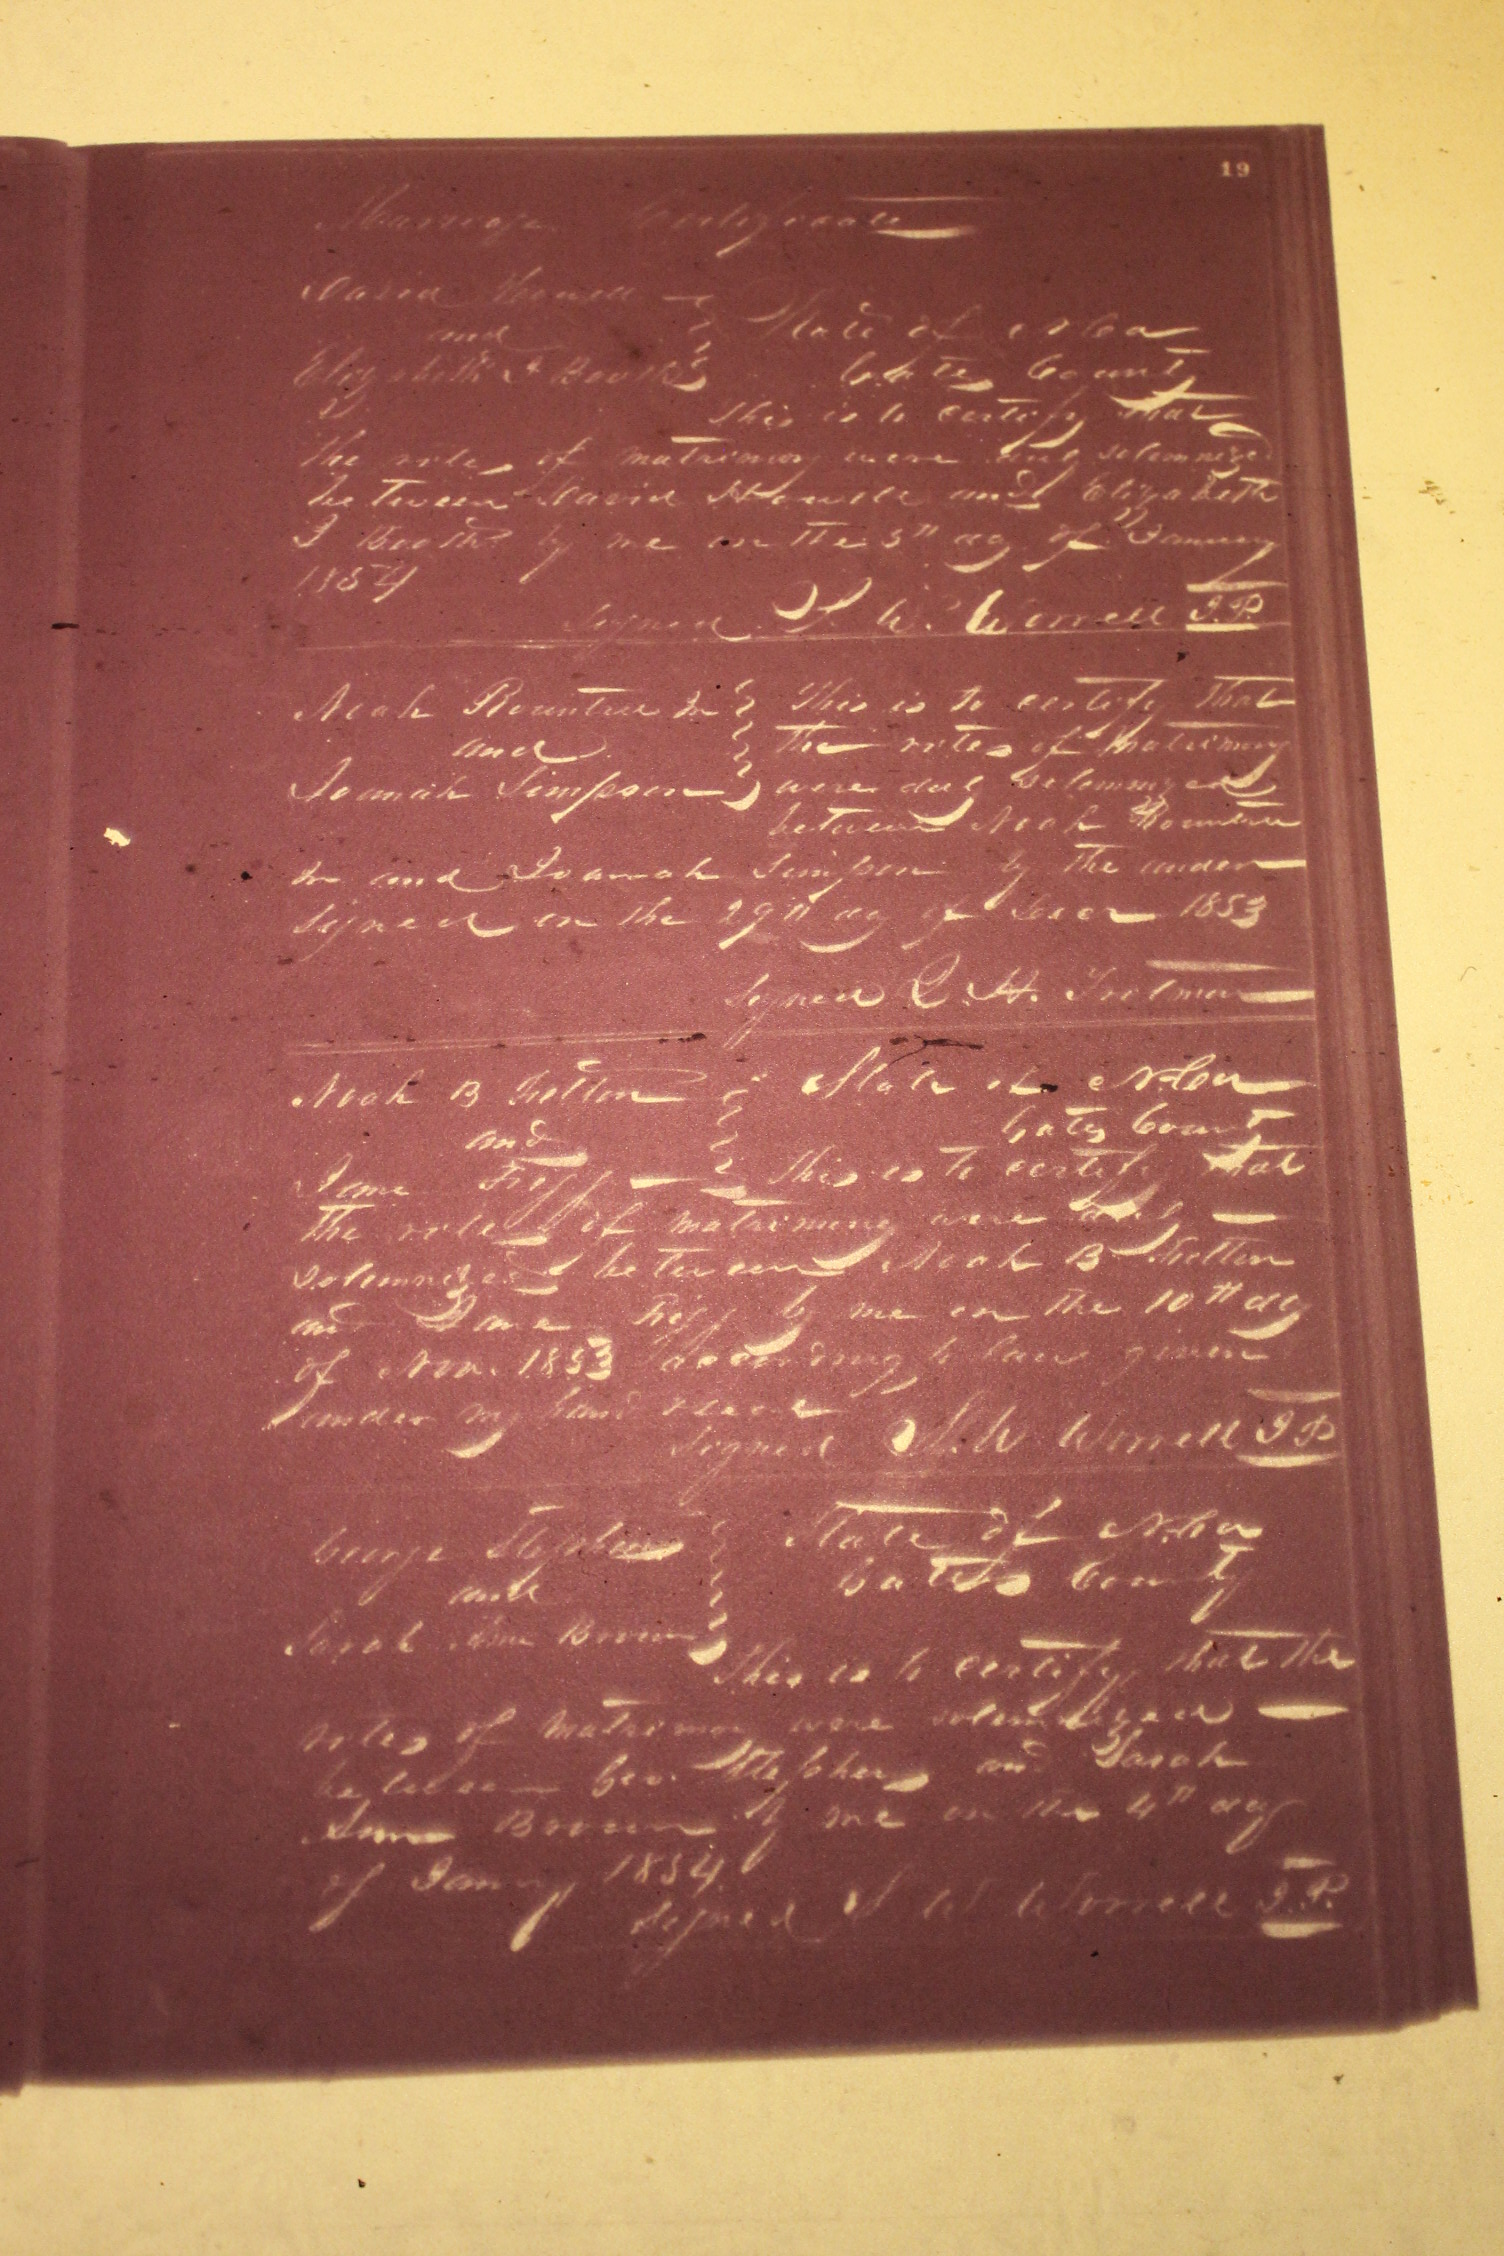 19
Marriage Certificate
David Howell
and
Elizabeth J Booth
State of N Ca
Gates County
This is to certify that
the rites of matrimony were duly solemnized
between David Howell and Elizabeth
J Booth by me on the 5th day of January
1854
Signed S. W. Worrell J.P.
Noah Rountree
and
Joanah Simpson
This is to certify that
the rites of matrimony
were duly solemnized
between Noah Rountree
and Joanah Simpson by the under
signed on the 29th day of Decr 1853
Signed Q. H. Trotman
Noah B Felton
and
Jane Tripp
State of N. Ca
Gates County
This is to certify that
the rites of matrimony were duly
solemnized between Noah B Felton
and Jane Tripp by me on the 10th day
of Nov. 1853 according to law given
under my hand
Signed S. W Worrell J P
George Stephens
and
Sarah Ann Brown
State of N. Ca
Gates County
This is to certify that the
rites of matrimony were solemnized
between Geo. Stephens and Sarah
Ann Brown by me on the 4th day
of Janury 1854
Signed S W Worrell J.P.